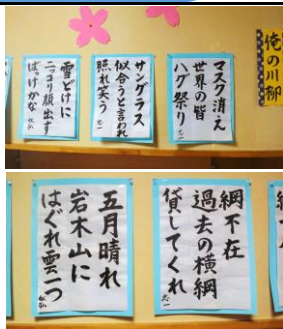 俺の川柳
マスク消え
世界の皆
ハグ祭り
サングラス
似合うと言われ
照れ笑う
雪どけに
ニッコリ顔出す
ばっけかな
綱不在
過去の横綱
貸してくれ
五月晴れ
岩木山に
はぐれ雲一つ